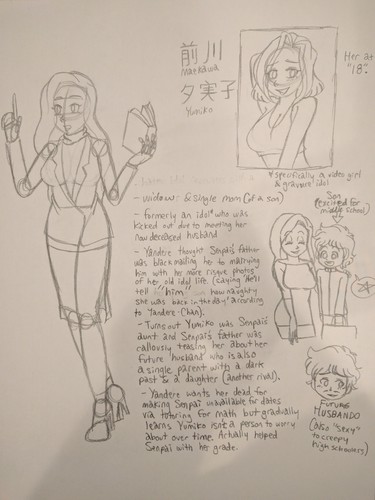 前川
Matkawa
夕実子
Yumiko
Her at
"18".
specifically a video girl
& gravure idol
- widow & single mom (of a son)
- formerly an idol who was
kicked out due to meeting her
now deceased husband
- Yandere thought Senpai's father
was blackmailing he to marrying
him with her more risque photos
of her old idol life. (saying He'll
tell "him" how naughty
she was back in the day" according
to Yandere-Chan).
- Turns out Yumiko was Senpai's
aunt and Senpai's father was
callously teasing her about her
future husband who is also
a single parent with a dark
past & a daughter (another rival).
- Yandere wants her dead for
making Senpai unavailable for dates
via tutoring for math but gradually
learns Yumiko isn't a person to worry
about over time. Actually helped
Senpai with her grade.
Son
(excited for
middle school)
FUTURE
HUSBANDO
(also "sexy"
to creepy
high schoolers)